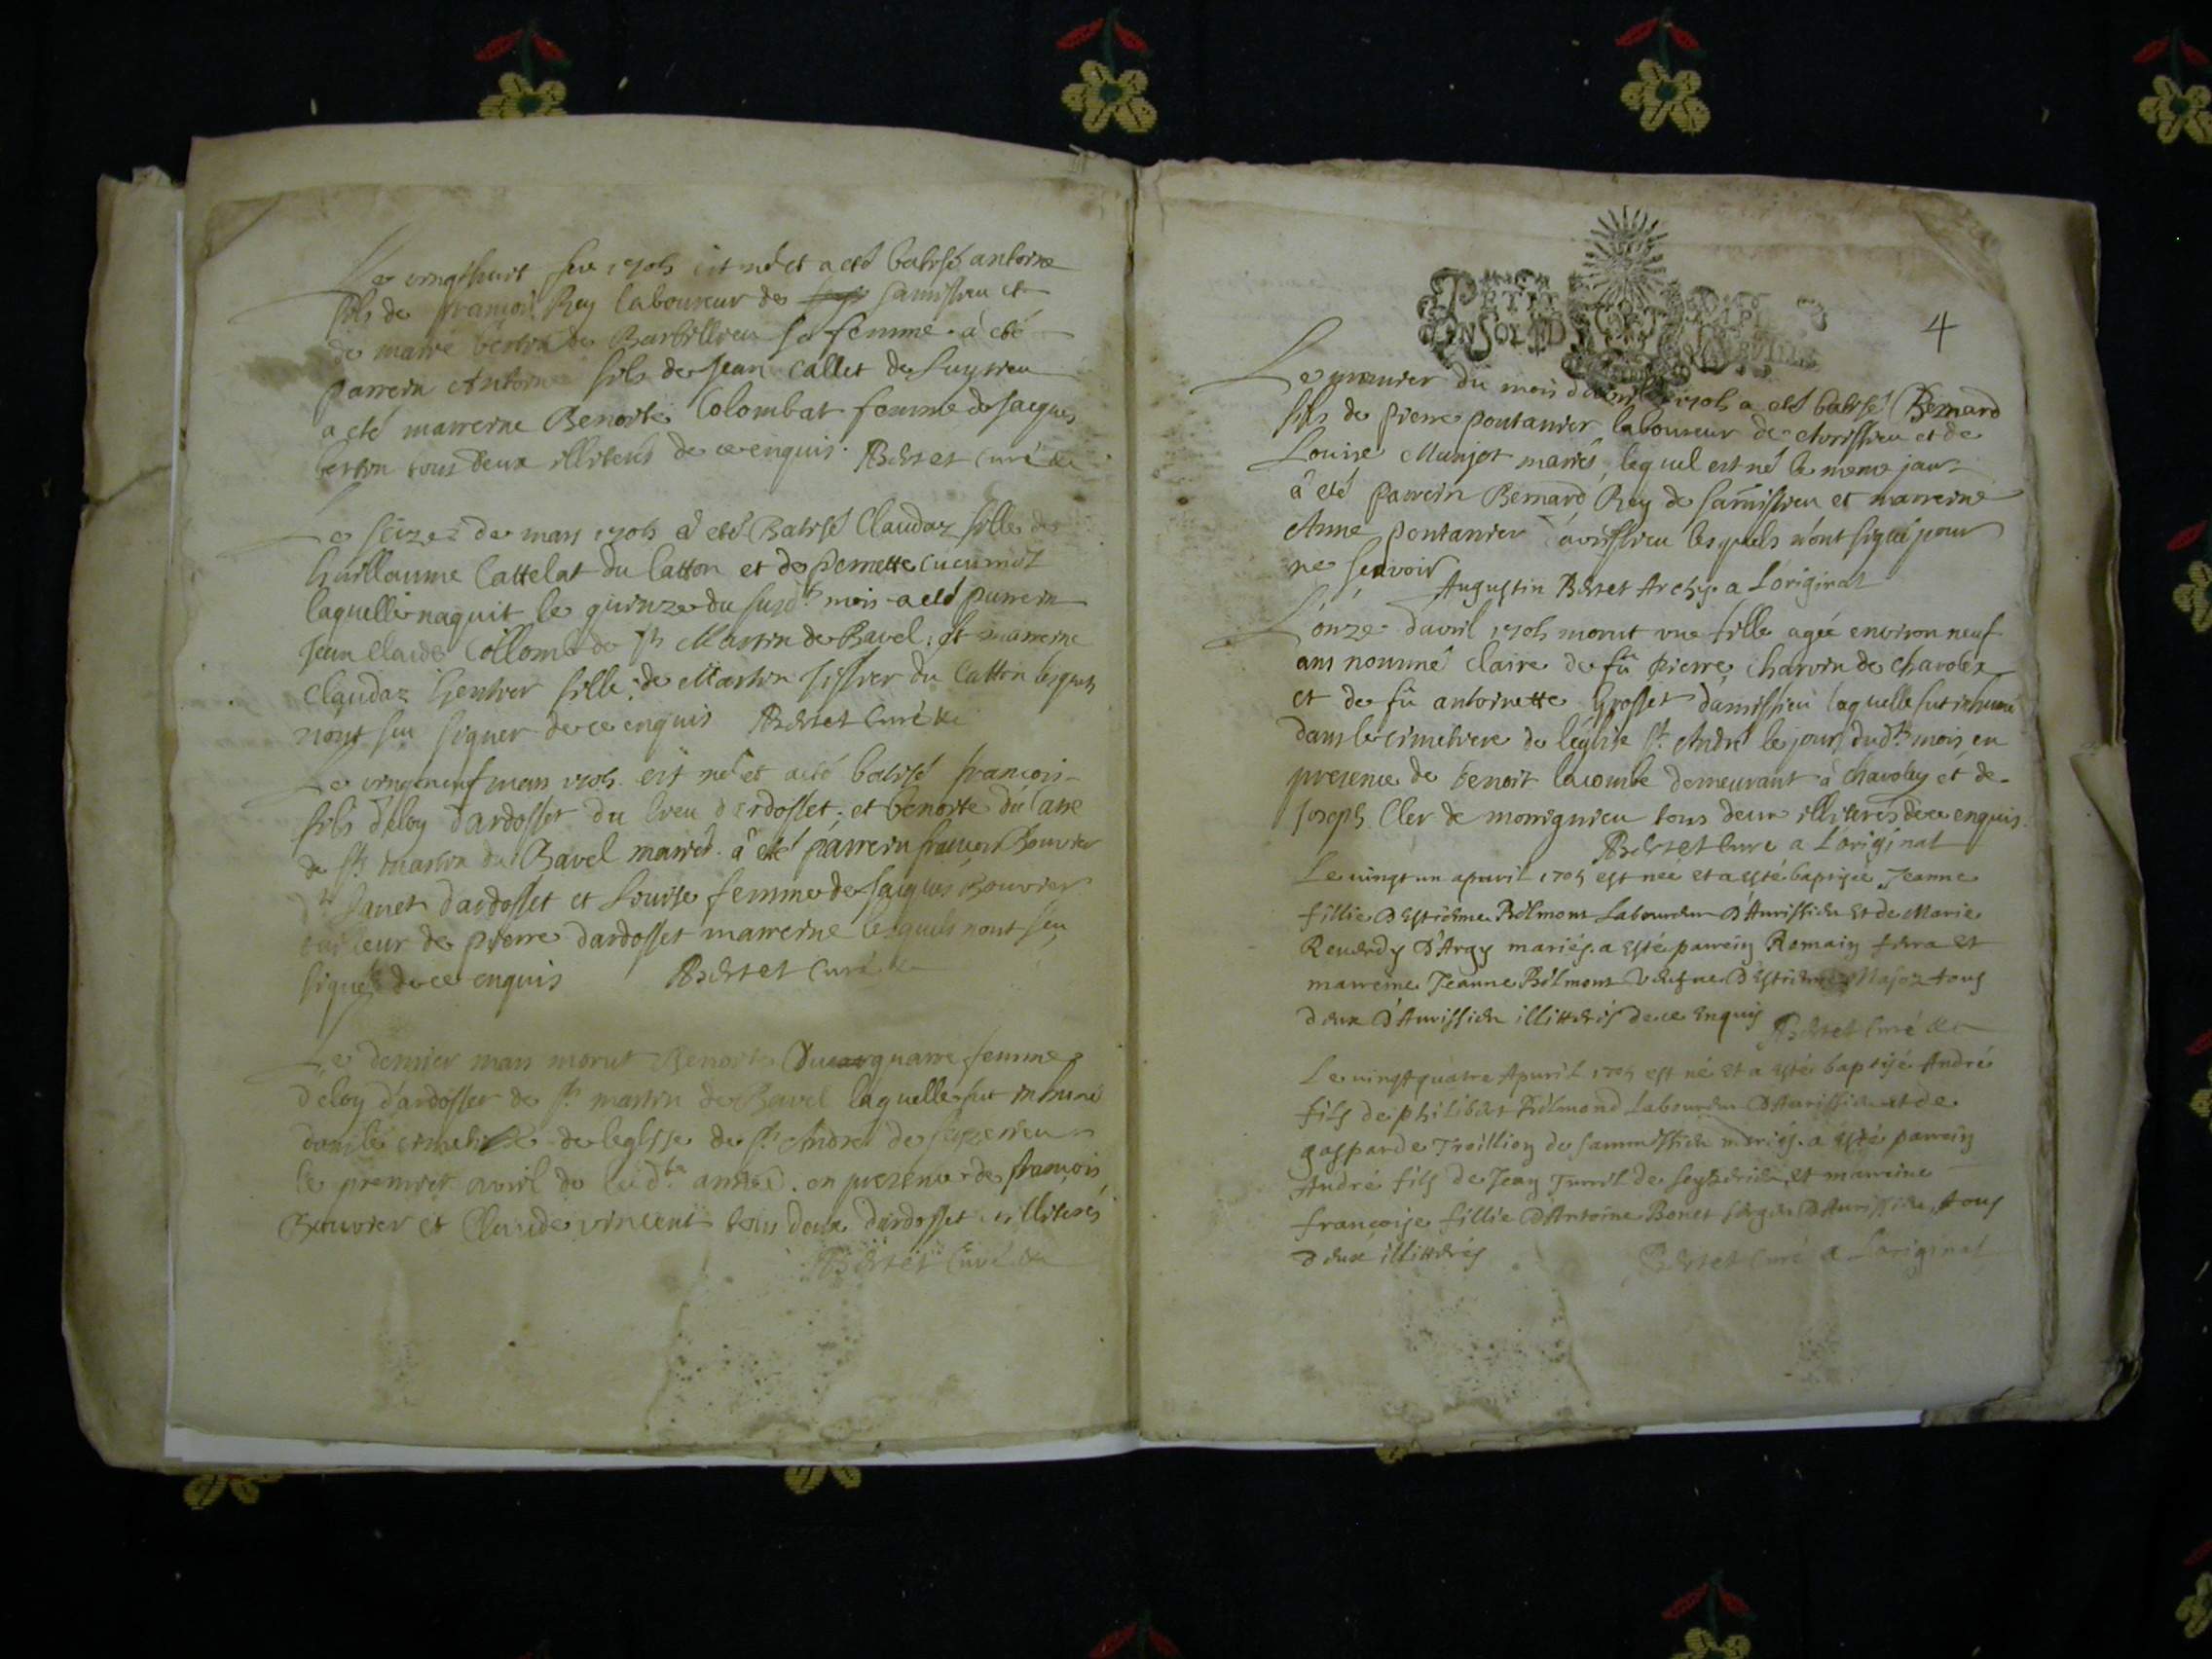 Le vingthuit feu 1705 est né et a eté batisé antoine
fils de françois Rey laboureur de samissieu et
de marie berton de Barbillieu sa femme. à eté
parrein Antoine fils de Jean Callet de Luysieu
a eté marreine Benoite Colombat femme de Jacques
berton tous deux illiterés de ce enquis. Bertet Curé &c
Le seize de mars 1705 a eté Batisé Claudaz fille de
Guillaume Cattelat du Catton et de pernette
laquelle naquit le quinze du susdt mois a eté parrein
Jean Claude Collomb de St Martin de Bavel. et marreine
Claudaz fille de Martin du Catton lesquels
n'ont seu signer de ce enquis Bertet Curé &c
Le vingtneuf mars 1705 est né et a eté batisé françois
fils d'eloy d'ardosset du lieu d'ardosset. et benoite
de St martin de Bavel mariés. a eté parrein françois Bouvier
dt Janet d'ardosset et Louise femme de Jacques Bouvier
tailleur de pierre d'ardosset marreine lesquels n'ont seu
signer de ce enquis Bertet Curé &c
Le dernier mars morut Benoite femme
d'eloy d'ardosset de St martin de Bavel laquelle fut inhumé
dans le cimetiere de leglise de St André de
le premier avril de ladte année. en presence de françois
Bouvier et Claude vincent tous deux d'ardosset illiterés
Bertet Curé &c
4
Le premier du mois d'avril 1705 a eté batisé Bernard
fils de pierre pontanier laboureur de Avrissieu et de
Louise Munjot mariés, lequel est né le meme jour
a eté parrein Bernard Rey de samissieu et marreine
Anne pontanier d'avrissieu lesquels n'ont signé pour
ne sçavoir Augustin Bertet a L'original
L'onze d'avril 1705 morut une fille agée environ neuf
ans nommé Claire de fû pierre Charvin de Chavoley
et de fû antoinette Grosset d'amissieu laquelle fut inhumé
dans le cimetiere de léglise St André le jour dudt mois en
presence de benoit lacombe demeurant à Chavoley et de
Joseph Cler de mornignieu tous deux illiterés de ce enquis.
Bertet Curé a L'original
Le vingt un apuril 1705 est née et a esté baptisée Jeanne
fillie D'Estienne Bélmont Laboureur D'Avrissieu et de Marie
Reverdy D'Argy mariés. a esté parrein Romain fera et
marreine Jeanne Bélmont vefve D'Estienne tous
deux D'Avrissieu illittérés de ce Enquis Bertet Curé &c
Le vingtquatre Apuril 1705 est né et a esté baptisé André
fils de philibert Bélmond Laboureur D'Avrissieu et de
gasparde Troillion de sammissieu mariés. a esté parrein
André fils de Jean de seyzérieu, et marreine
françoise fillie D'Antoine Bonet D'Avrissieu, tous
deux illittérés Bertet Curé a L'original